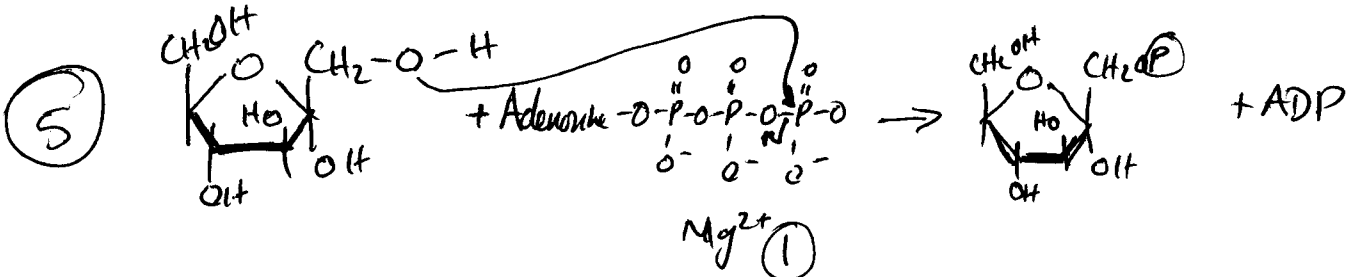 5
CH₂OH O CH₂-O-H HO OH OH
+ Adenosine -O-P-O-P-O-P-O
O O O
O⁻ O⁻ O⁻
Mg²⁺ 1
→
CH₂OH O CH₂OP HO OH OH
+ ADP